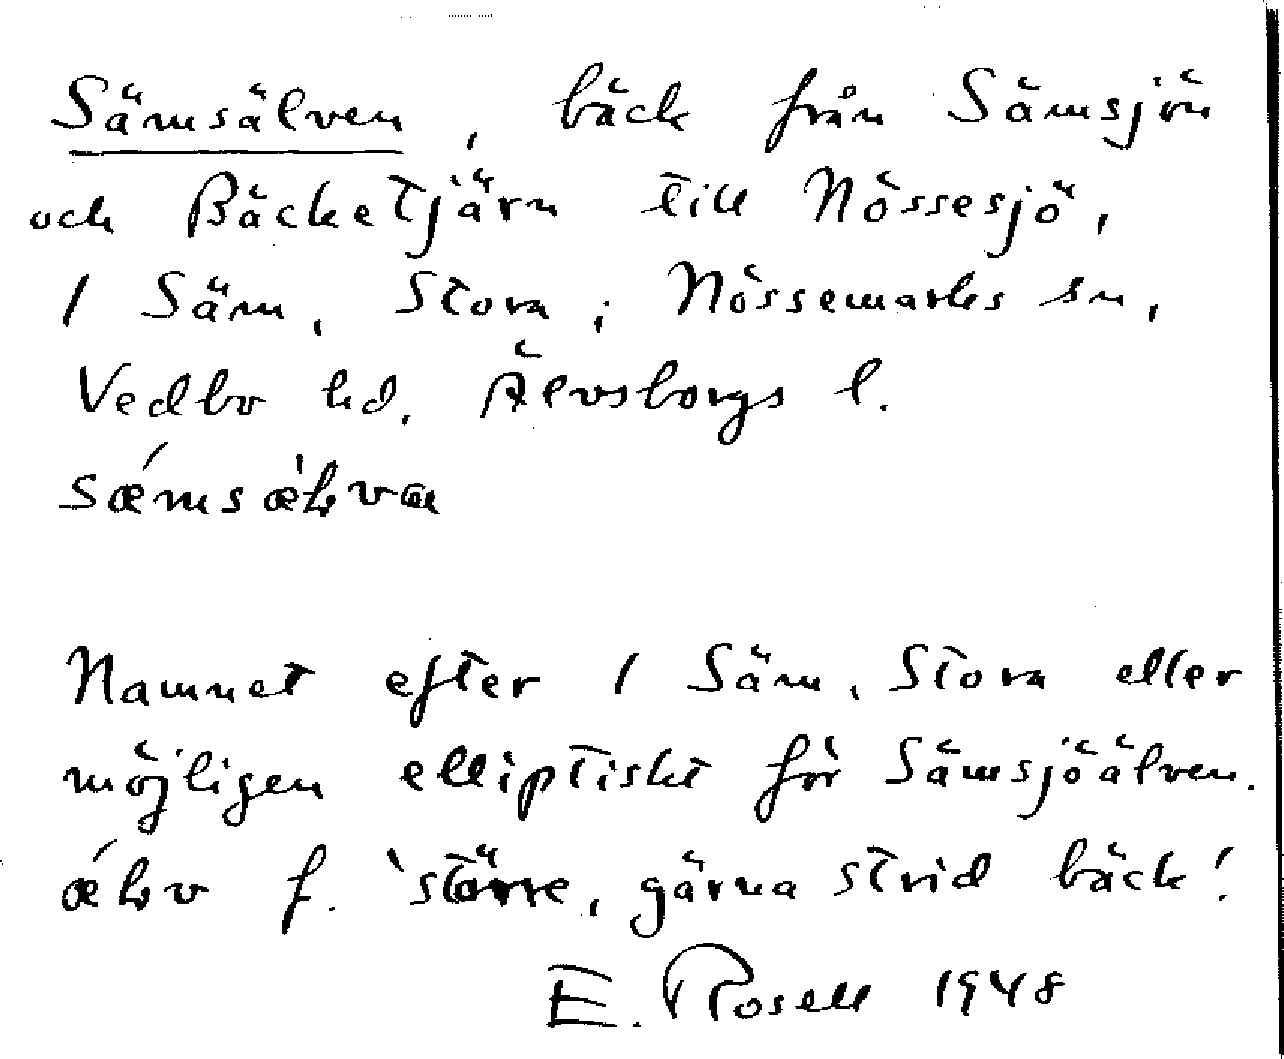 Sämsälven, bäck från Sämsjön
och Bäcketjärn till Nössesjö,
1 Säm, Stora; Nössemarks sn,
Vedbo hd. Älvsborgs l.
Namnet efter 1 Säm, Stora eller
möjligen elliptiskt för Sämsjöälven.
f. 'större, gärna strid bäck'.
E. Rosell 1948